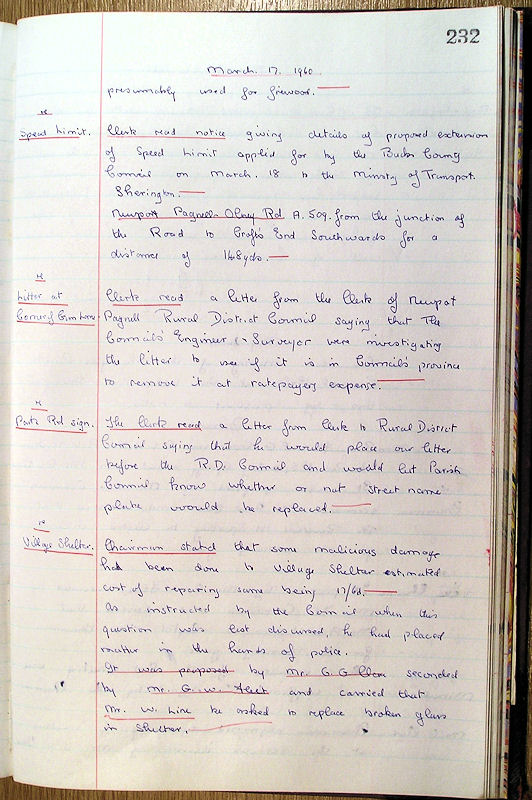 232
March. 17. 1960.
presumably used for firewood.
Speed Limit.
Clerk read notice giving details of proposed extension
of Speed Limit applied for by the Bucks County
Council on March. 18 to the Ministry of Transport.
Sherington.
Newport Pagnell-Olney Rd A. 509. from the junction of
the Road to Crofts End Southwards for a
distance of 148yds.
Litter at
Corner of Gun Lane.
Clerk read a letter from the Clerk of Newport
Pagnell Rural District Council saying that The
Council's Engineer & Surveyor were investigating
the litter to see if it is in Council's province
to remove it at ratepayers expense.
Park Rd sign.
The Clerk read a letter from Clerk to Rural District
Council saying that he would place our letter
before the R.D. Council and would let Parish
Council know whether or not street name
plate would be replaced.
Village Shelter.
Chairman stated that some malicious damage
had been done to Village Shelter estimated
cost of repairing same being 17/6d.
As instructed by the Council when this
question was last discussed, he had placed
matter in the hands of police.
It was proposed by Mr. G. G. seconded
by Mr. G. W. and carried that
Mr. W. Line be asked to replace broken glass
in Shelter.